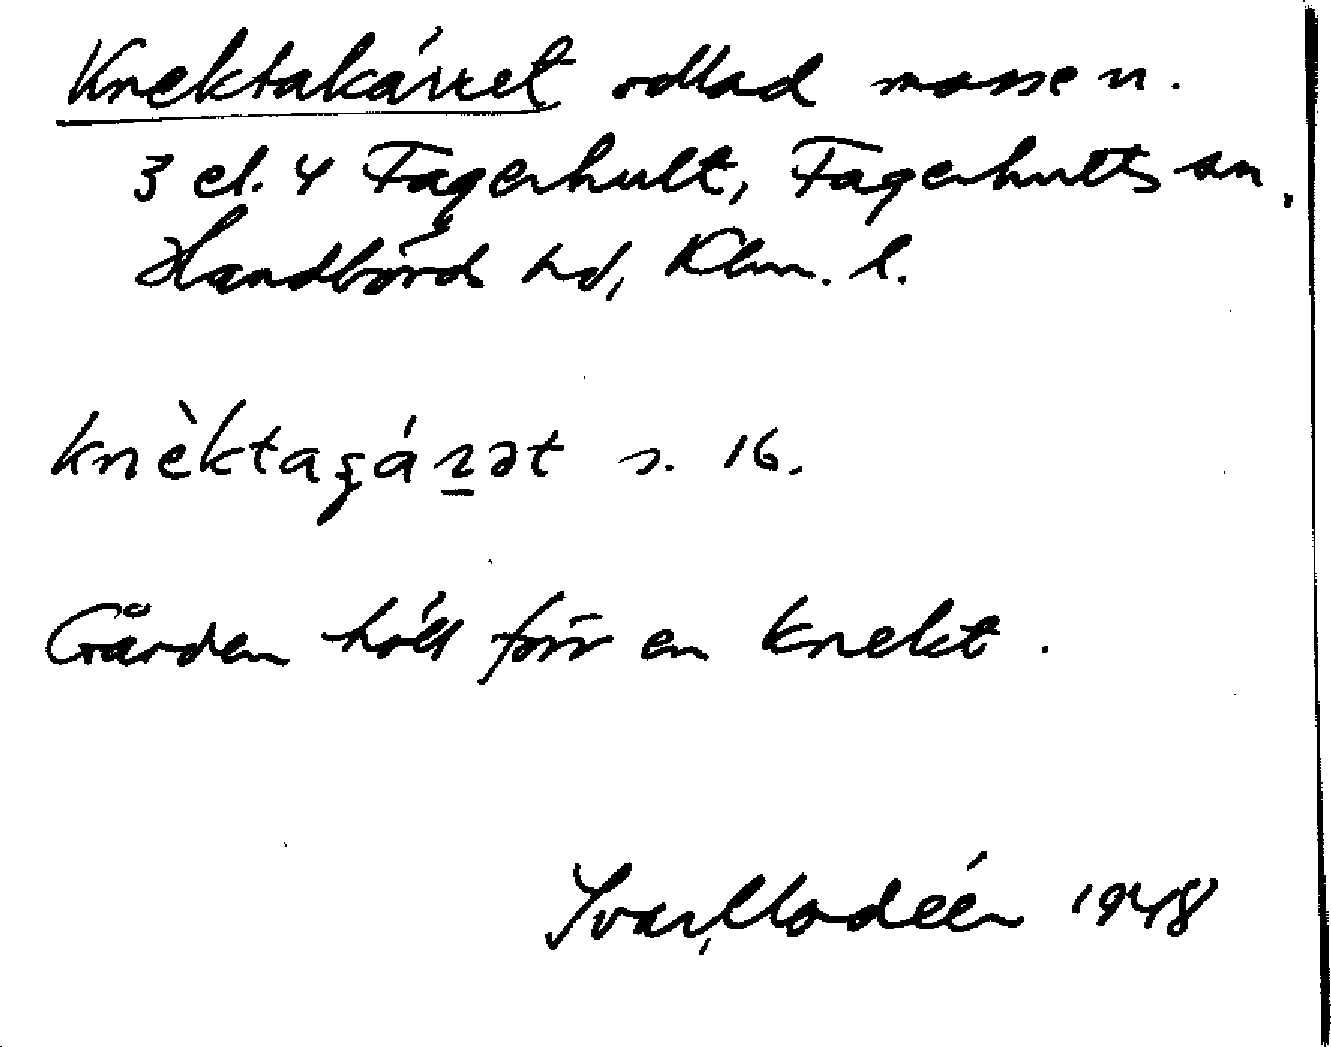 Knektakärret odlad mosse n.
3 el. 4 Fagerhult, Fagerhults sn.
Handbörds hd, Klm. l.
knèktaʂáɀət n. 16.
Gården höll förr en knekt.
Ivar Modéer 1948